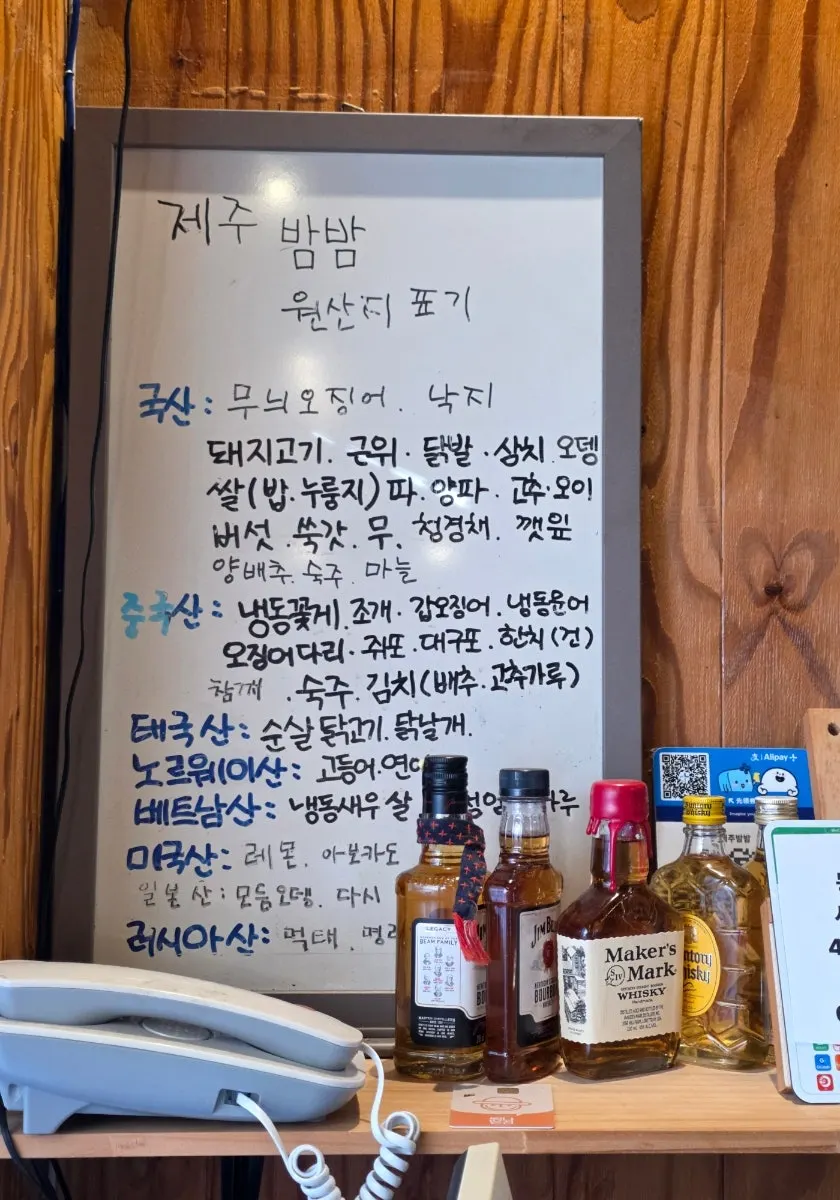 제주 밤밤
원산지 표기
국산: 무늬오징어. 낙지
돼지고기. 근위. 닭발. 삼치 오뎅
쌀(밥.누룽지) 파. 양파. 고추.오이
버섯. 쑥갓. 무. 청경채. 깻잎
양배추. 숙주. 마늘
중국산: 냉동꽃게. 조개. 갑오징어. 냉동문어
오징어다리. 쥐포. 대구포. 한치(건)
참깨. 숙주. 김치(배추.고추가루)
태국산: 순살 닭고기. 닭날개.
노르웨이산: 고등어.연
베트남산: 냉동새우 살
미국산: 레몬. 아보카도
일본산: 모듬오뎅. 다시
러시아산: 먹태. 명
Alipay+
LEGACY
BEAM FAMILY
JIM
Maker's
SIV
Mark
WHISKY
Whisky